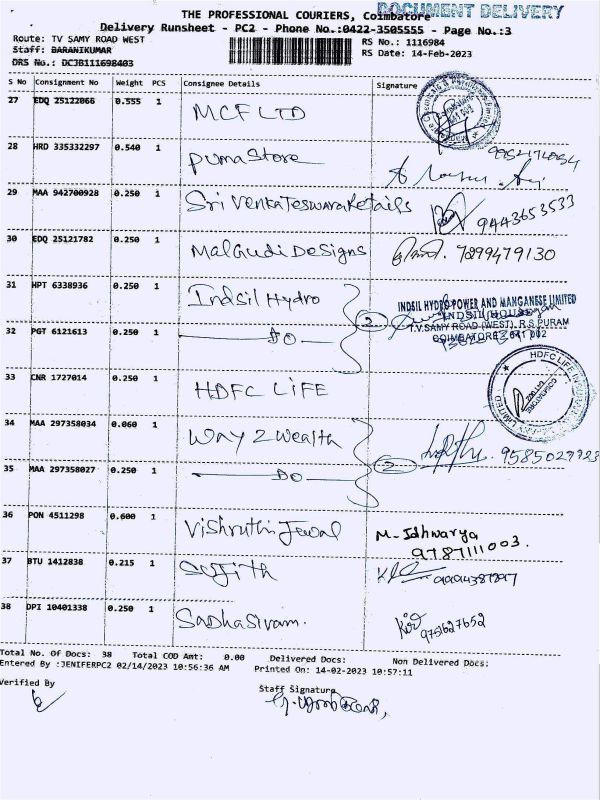 THE PROFESSIONAL COURIERS, Coimbatore
DOCUMENT DELIVERY
Delivery Runsheet - PC2 - Phone No.:0422-3505555 - Page No.:3
Route: TV SAMY ROAD WEST
RS No.: 1116984
Staff: BARANIKUMAR
RS Date: 14-Feb-2023
DRS No.: DCJB111698403
S No Consignment No Weight PCS Consignee Details Signature
27 EDQ 25122066 0.555 1 MCF LTD
28 HRD 335332297 0.540 1 Puma Store
29 MAA 942700928 0.250 1 Sri Venkateswara Retails 9443653533
30 EDQ 25121782 0.250 1 Malgudi Designs 7299479130
31 HPT 6338936 0.250 1 Indsil Hydro
INDSIL HYDRO POWER AND MANGANESE LIMITED
"INDSIL HOUSE"
T.V.SAMY ROAD (WEST), R.S.PURAM
COIMBATORE - 641 002
32 PGT 6121613 0.250 1 DO 2
33 CNR 1727014 0.250 1 HDFC LIFE
HDFC LIFE LIMITED COIMBATORE
34 MAA 297358034 0.060 1 Way 2 Wealth
35 MAA 297358027 0.250 1 DO 2
36 PON 4511298 0.600 1 Vishruthi Jewal M-Idhwarya
9787111003.
37 BTU 1412838 0.215 1 Sujith
38 DPI 10401338 0.250 1 Sadhasivam. 9751627652
Total No. Of Docs: 38 Total COD Amt: 0.00 Delivered Docs: Non Delivered Docs:
Entered By :JENIFERPC2 02/14/2023 10:56:36 AM Printed On: 14-02-2023 10:57:11
Verified By
Staff Signature